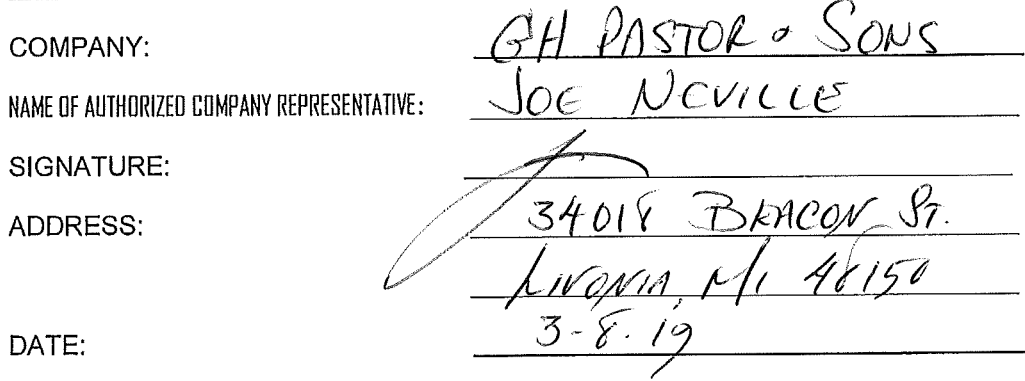 COMPANY: GH PASTOR & SONS
NAME OF AUTHORIZED COMPANY REPRESENTATIVE: JOE NEVILLE
SIGNATURE:
ADDRESS: 34018 BEACON ST.
LIVONIA, MI 48150
DATE: 3-8-19